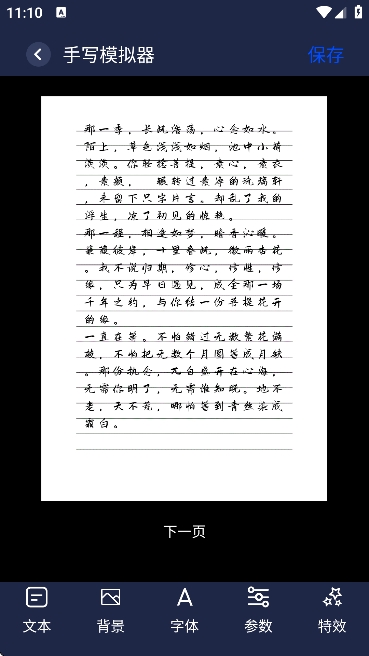 11:10
手写模拟器
保存
那一季，长风浩荡，心念如水。
陌上，草色浅浅如烟，池中小荷
淡淡。你轻捻菩提，素心，素衣
，素颜，辗转过素净的流璃轩
，未留下只字片言。却乱了我的
浮生，凉了初见的惊艳。
那一程，相逢如梦，暗香沁暖。
蒹葭彼岸，十里春风，微雨杏花
。我不说归期，修心，修性，修
缘，只为早日遇见，成全那一场
千年之约，与你结一份菩提花开
的缘。
一直在等。不怕错过无数繁花满
枝，不怕把无数个月圆等成月缺
。那份执念，兀自盛开在心海，
无需你明了，无需谁知晓。地不
老，天不荒，哪怕等到青丝染成
霜白。
下一页
文本
背景
字体
参数
特效